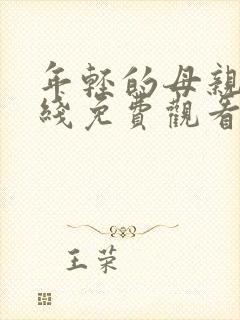 年轻的母亲
綫免費觀看
王荣